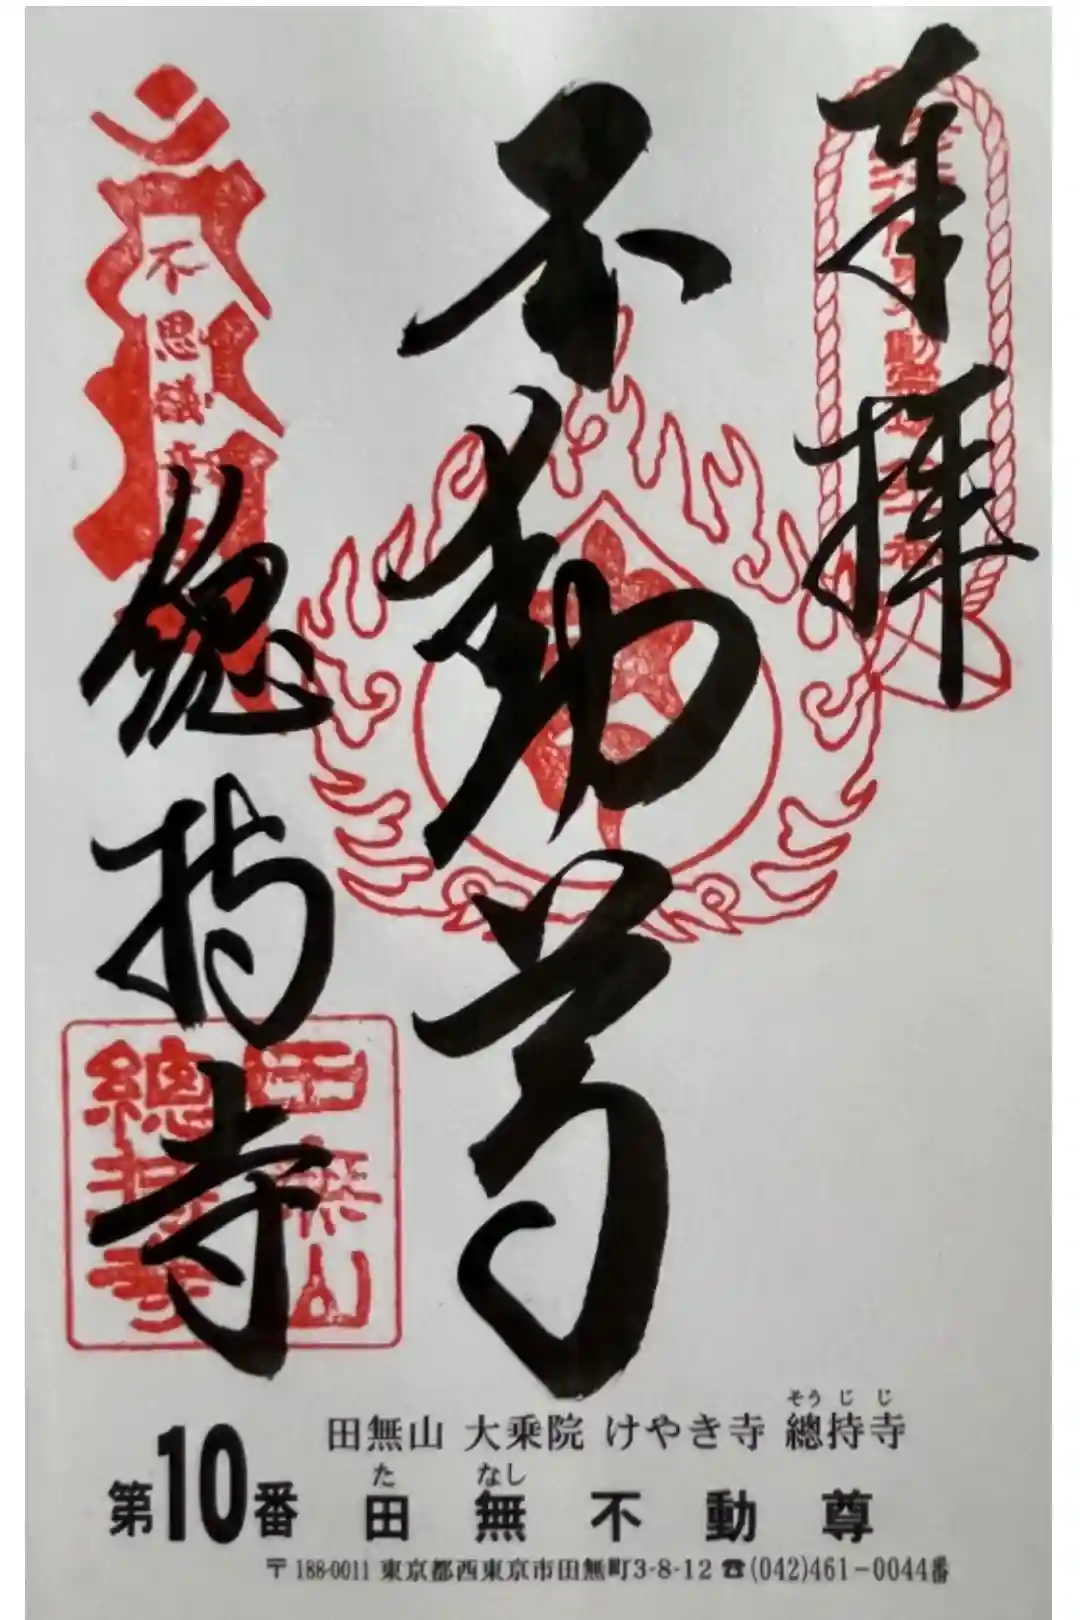 奉拝
不動尊
總持寺
不思議
田無山
總持寺
そうじじ
田無山 大乗院 けやき寺 總持寺
たなし
第10番 田無不動尊
〒188-0011 東京都西東京市田無町3-8-12 ☎(042)461-0044番